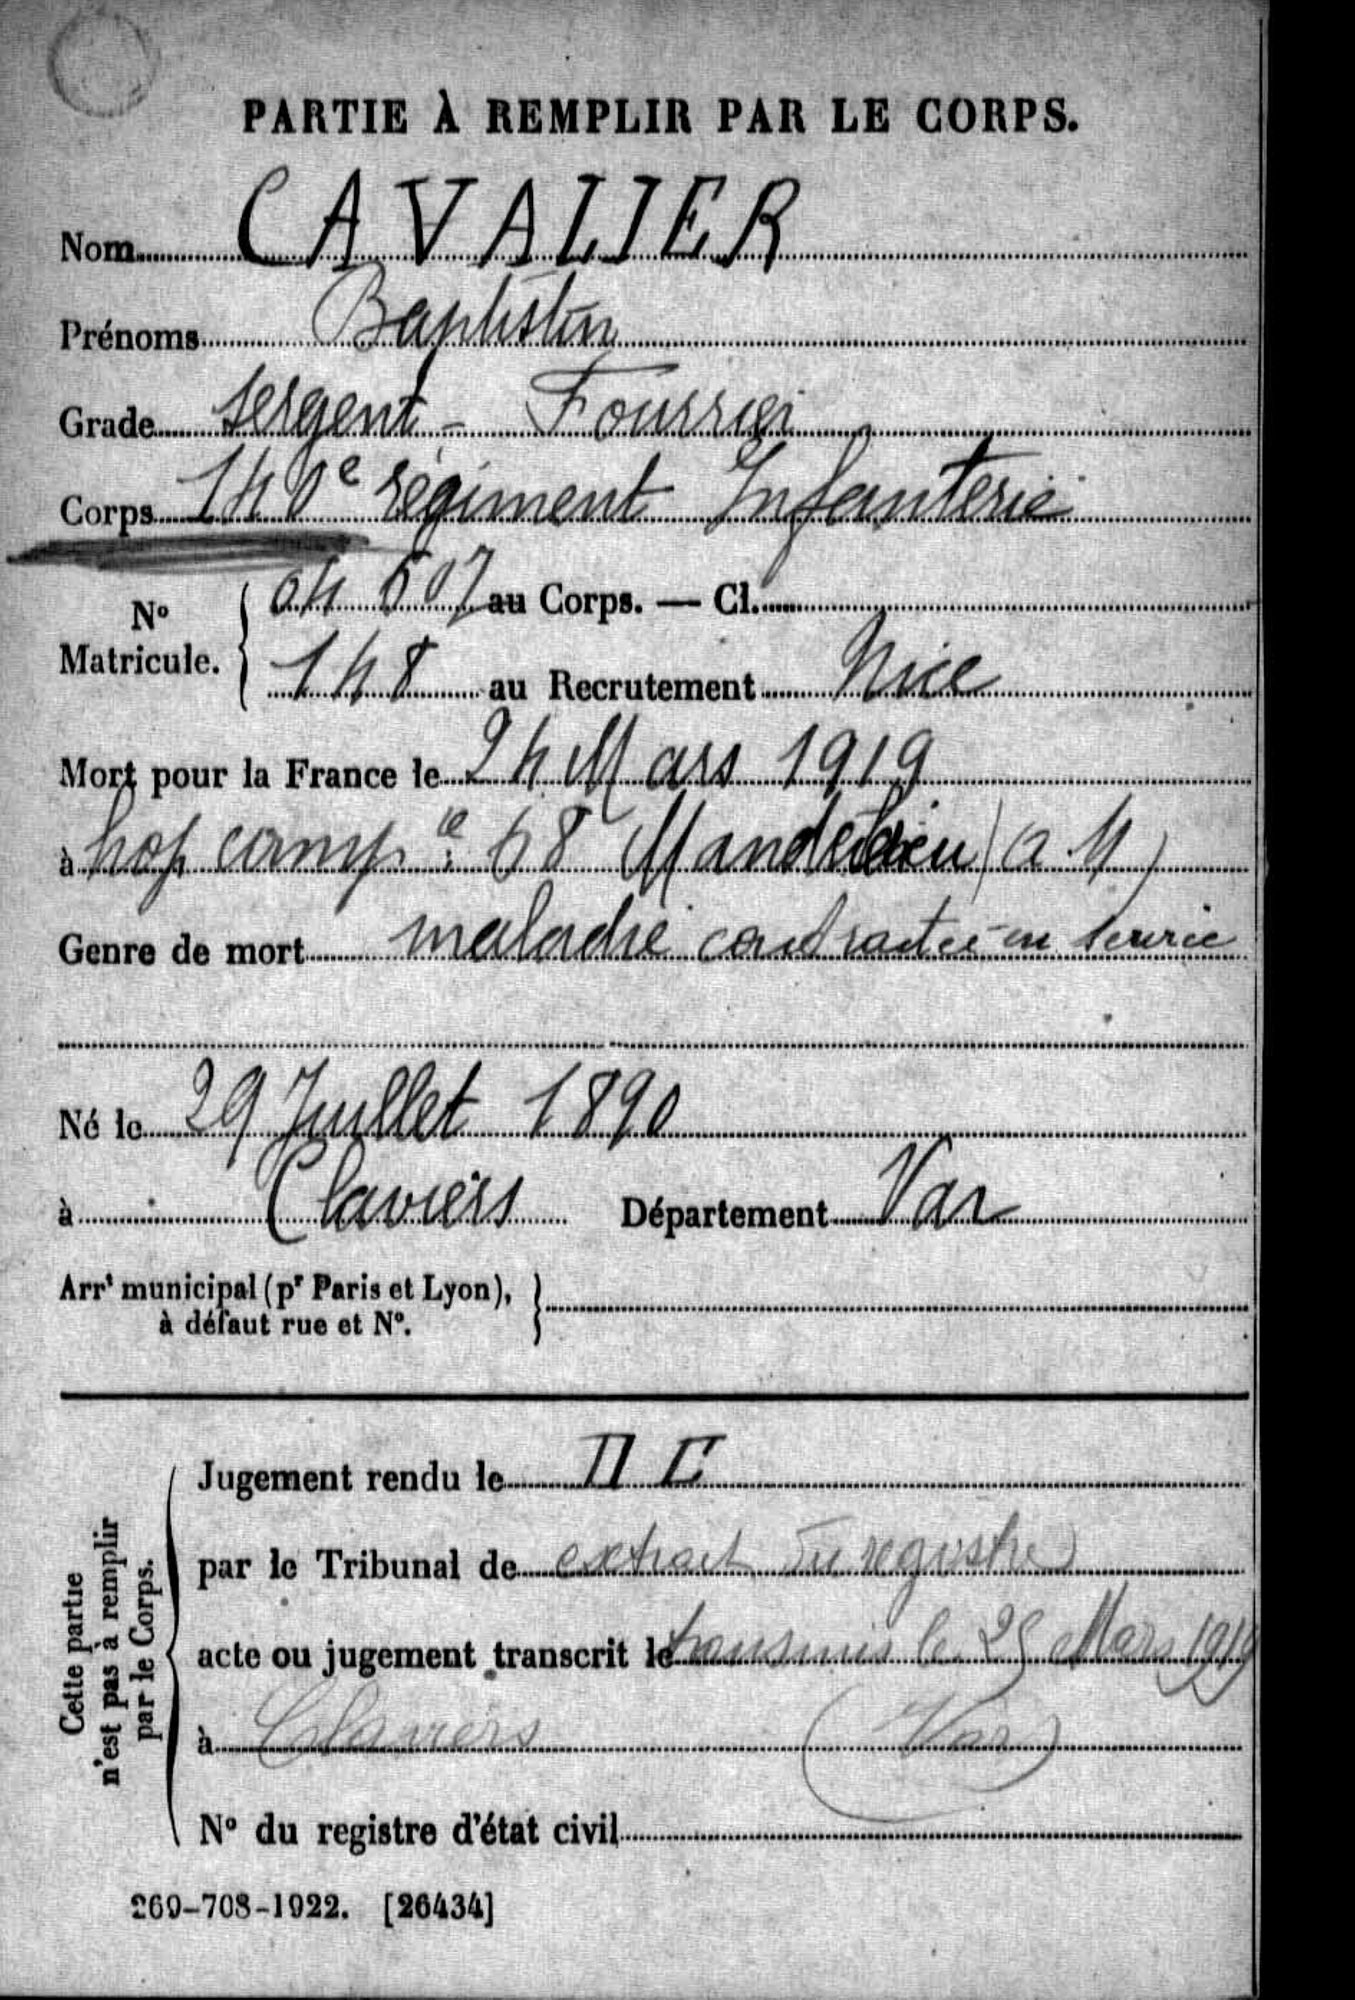 PARTIE À REMPLIR PAR LE CORPS.
Nom CAVALIER
Prénoms Baptistin
Grade Sergent - Fourrier
Corps 140e régiment Infanterie
No Matricule. 04507 au Corps. — Cl.
148 au Recrutement Nice
Mort pour la France le 24 Mars 1919
à hop comp re: 68 Mandelieu (a M)
Genre de mort maladie contractée en service
Né le 29 Juillet 1890
à Claviers Département Var
Arrt municipal (pr Paris et Lyon),
à défaut rue et No.
Cette partie
n'est pas à remplir
par le Corps.
Jugement rendu le
par le Tribunal de extrait du registre
acte ou jugement transcrit le transmis le 25 Mars 1919
à Claviers (Var)
No du registre d'état civil
269-708-1922. [26434]